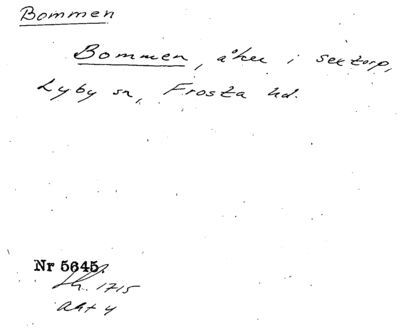 Bommen
Bommen, åker i Sextorp,
Lyby sn, Frosta hd.
Nr 5645.
Lh. 1715
Akt 4